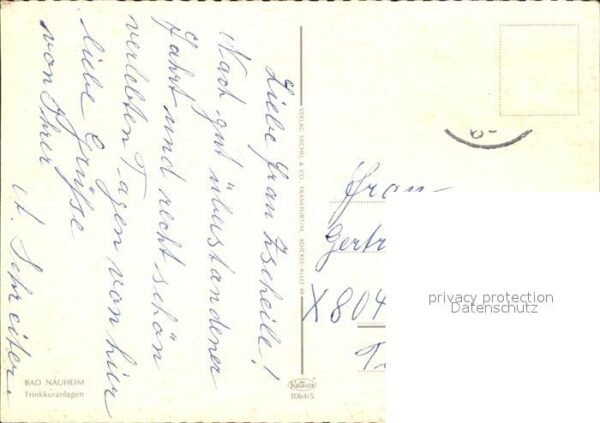 Liebe Frau Zscheile!
Nach gut überstandener
Fahrt und recht schön
verlebten Tagen von hier
liebe Grüße
von Ihrer
A. Schreiter.
BAD NAUHEIM
Trinkkuranlagen
VERLAG MICHEL & CO., FRANKFURT/M., ADICKES-ALLEE
Krüger
1064/5
Frau
Gertr
X804
privacy protection
Datenschutz